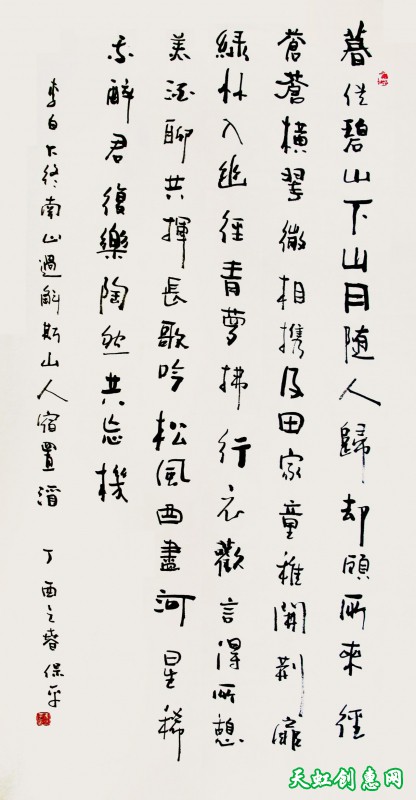 暮従碧山下山月随人歸却顧所来徑
蒼蒼橫翠微相携及田家童稚開荆扉
緑竹入幽徑青夢拂行衣歡言得所憩
美酒聊共揮長歌吟松風曲盡河星稀
我醉君復樂陶然共忘機
李白下终南山過斛斯山人宿置酒 丁酉之春 保平
天虹创惠网